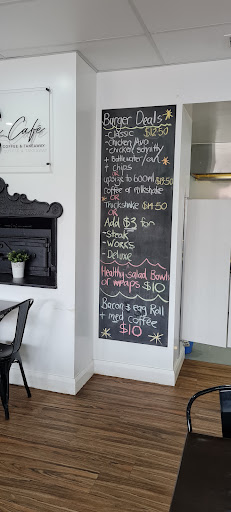 Café
COFFEE & TAKEAWAY
Burger Deals
- Classic $12.50
- Chicken/Mayo
- Chicken/Schnitty
+ Bottle water/can
chips
OR
upsize to 600ml $13.50
coffee or milkshake
OR
Thickshake $14.50
OR
Add $3 for
- Steak
- WORKS
- Deluxe
Healthy salad Bowls
or wraps $10
Bacon & egg Roll
+ med coffee
$10